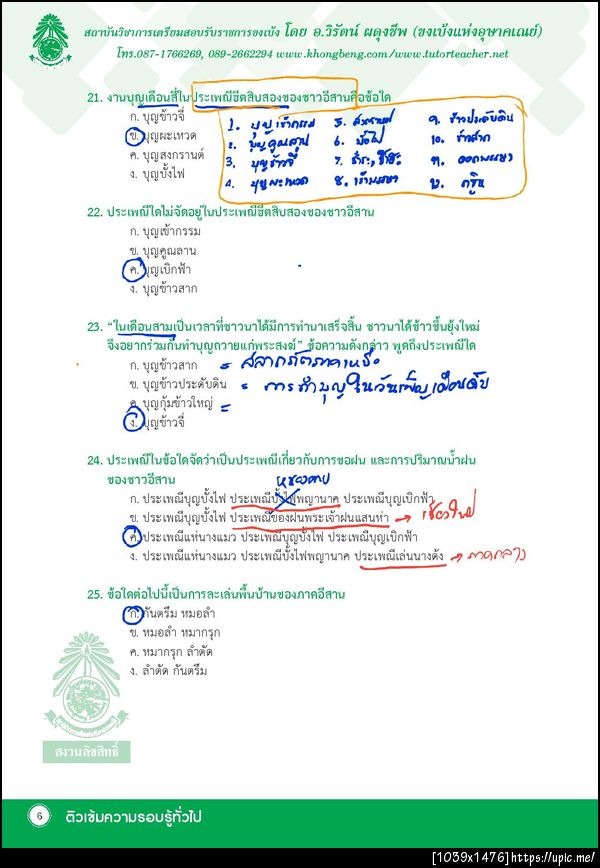 สถาบันวิชาการเตรียมสอบรับราชการขงเบ้ง โดย อ.วิรัตน์ ผดุงชีพ (ขงเบ้งแห่งอุษาคเณย์)
โทร.087-1766269, 089-2662294 www.khongbeng.com/www.tutorteacher.net
21. งานบุญเดือนสี่ในประเพณีฮีตสิบสองของชาวอีสานคือข้อใด
ก. บุญข้าวจี่
ข. บุญผะเหวด
ค. บุญสงกรานต์
ง. บุญบั้งไฟ
1. บุญเข้ากรรม
2. บุญคูณลาน
3. บุญข้าวจี่
4. บุญผะเหวด
5. สงกรานต์
6. บั้งไฟ
7.
8. เข้าพรรษา
9. ข้าวประดับดิน
10. ข้าวสาก
11. ออกพรรษา
12. กฐิน
22. ประเพณีใดไม่จัดอยู่ในประเพณีฮีตสิบสองของชาวอีสาน
ก. บุญเข้ากรรม
ข. บุญคูณลาน
ค. บุญเบิกฟ้า
ง. บุญข้าวสาก
23. “ในเดือนสามเป็นเวลาที่ชาวนาได้มีการทำนาเสร็จสิ้น ชาวนาได้ข้าวขึ้นยุ้งใหม่
จึงอยากร่วมกันทำบุญถวายแก่พระสงฆ์” ข้อความดังกล่าว พูดถึงประเพณีใด
ก. บุญข้าวสาก = สลากภัตภาคเหนือ
ข. บุญข้าวประดับดิน = การทำบุญในวันเพ็ญเดือนสิบ
ค. บุญกุ้มข้าวใหญ่ =
ง. บุญข้าวจี่
24. ประเพณีในข้อใดจัดว่าเป็นประเพณีเกี่ยวกับการขอฝน และการปริมาณน้ำฝน
ของชาวอีสาน
หนองคาย
ก. ประเพณีบุญบั้งไฟ ประเพณีบั้งไฟพญานาค ประเพณีบุญเบิกฟ้า
ข. ประเพณีบุญบั้งไฟ ประเพณีขอฝนพระเจ้าฝนแสนห่า → เชียงใหม่
ค. ประเพณีแห่นางแมว ประเพณีบุญบั้งไฟ ประเพณีบุญเบิกฟ้า
ง. ประเพณีแห่นางแมว ประเพณีบั้งไฟพญานาค ประเพณีเล่นนางด้ง → ภาคกลาง
25. ข้อใดต่อไปนี้เป็นการละเล่นพื้นบ้านของภาคอีสาน
ก. กันตรึม หมอลำ
ข. หมอลำ หมากรุก
ค. หมากรุก ลำตัด
ง. ลำตัด กันตรึม
สงวนลิขสิทธิ์
6 ติวเข้มความรอบรู้ทั่วไป
[1039x1476]https://upic.me/